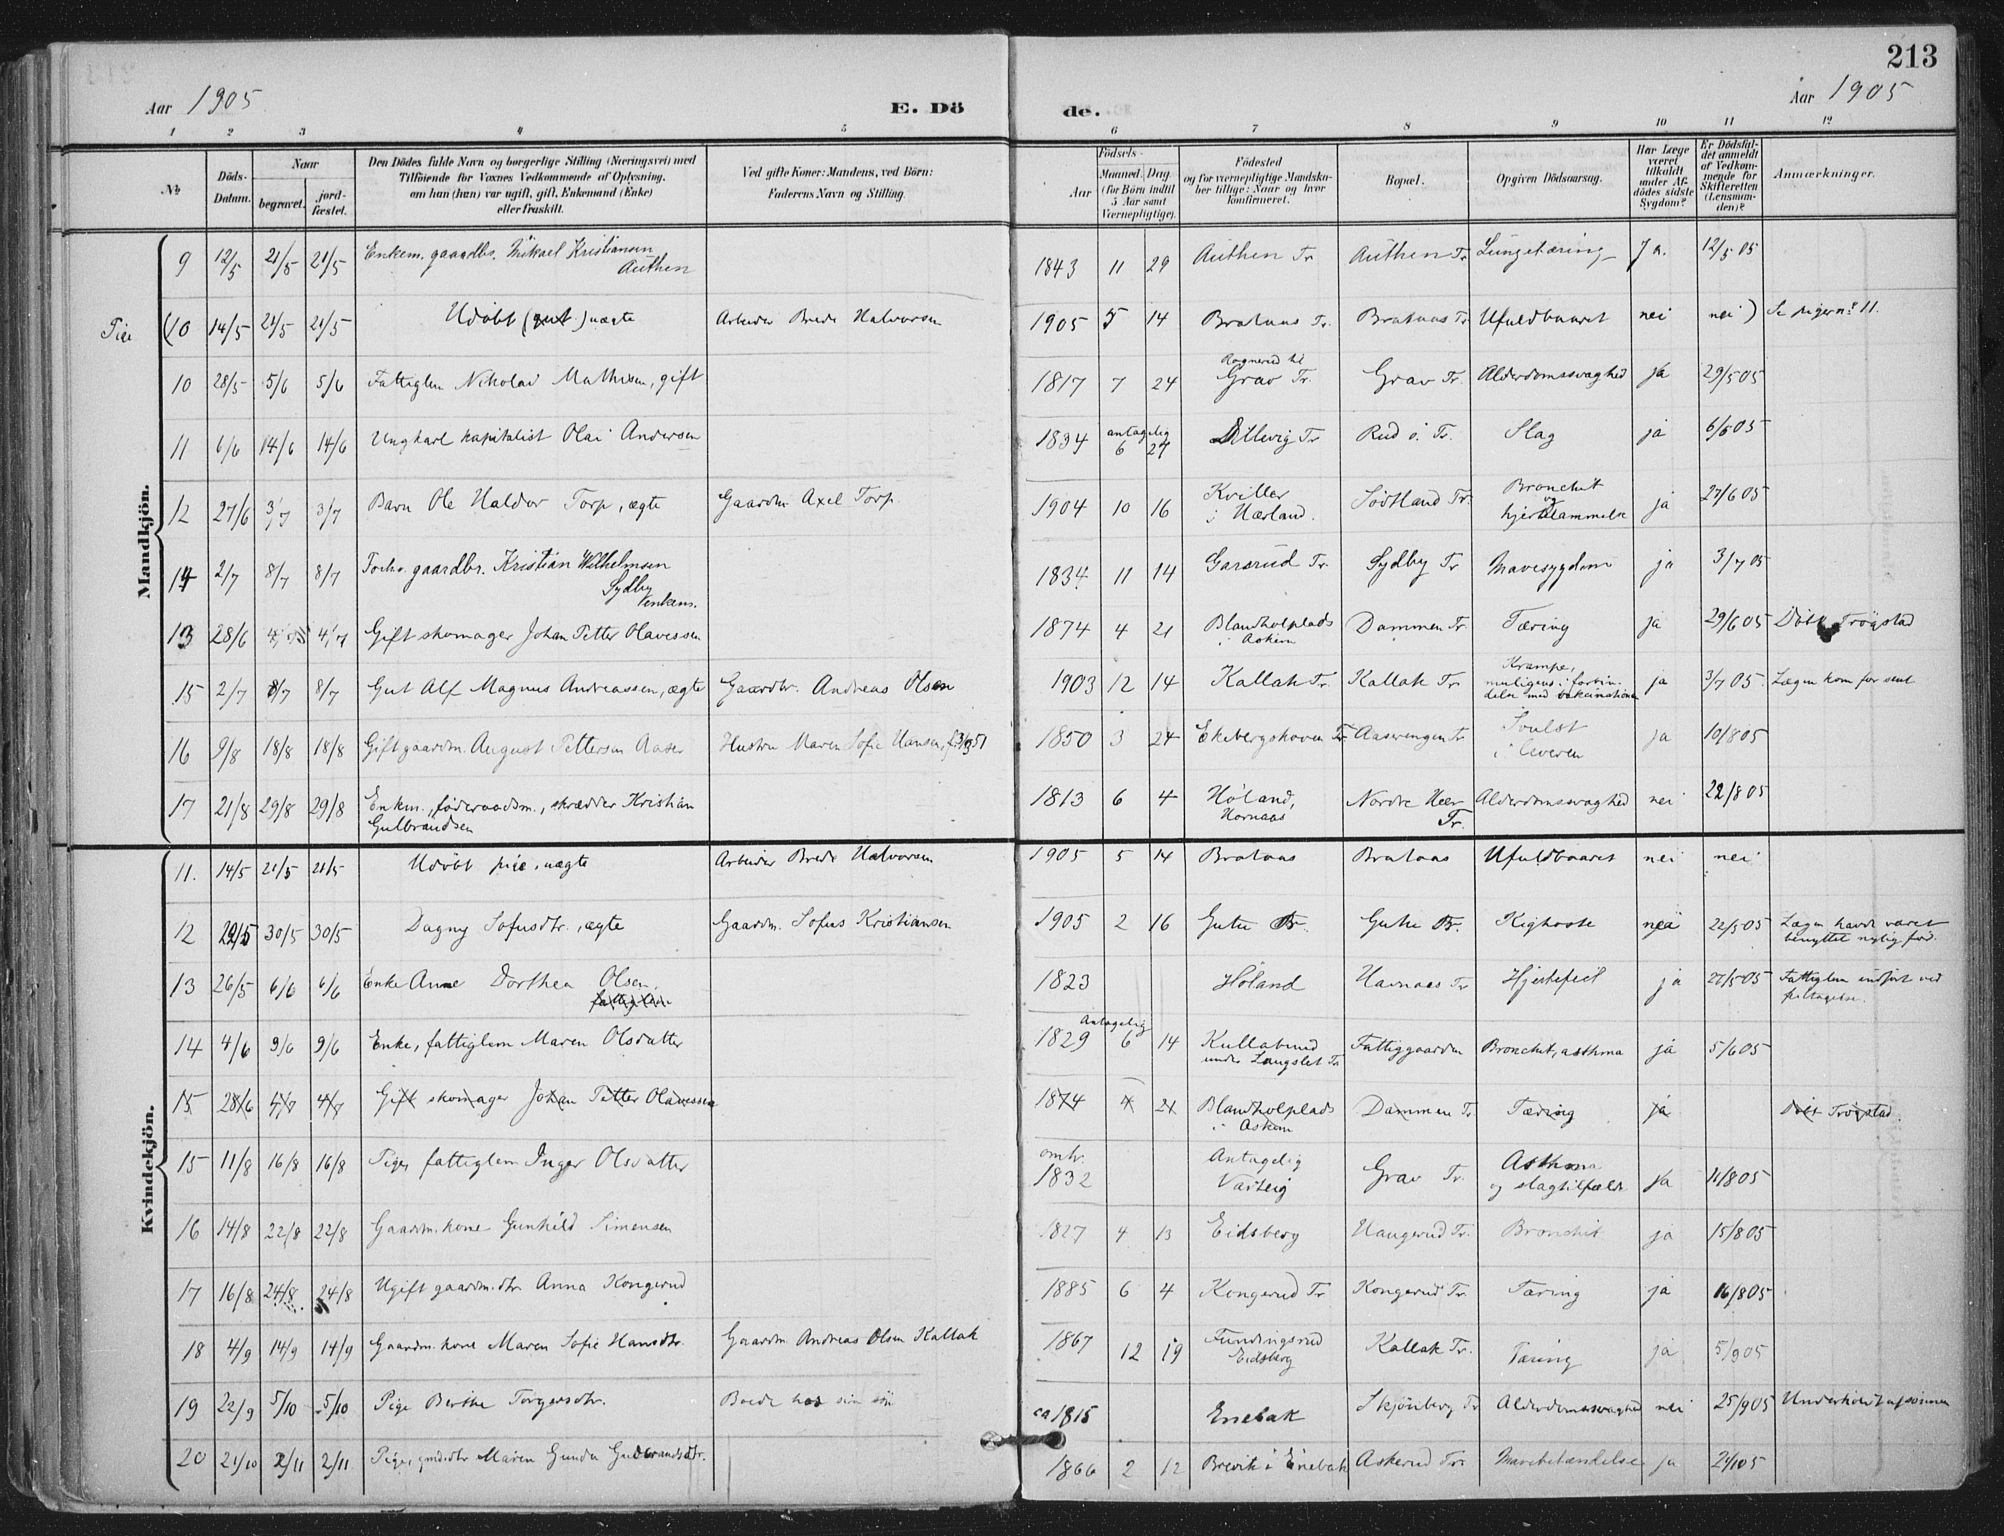 213
Aar 1905
E. Dö
de.
Aar 1905
1 2 3 4 5 6 7 8 9 10 11 12
No
Döds-Datum.
Naar
begravet.
jord-fæstet.
Den Dödes fulde Navn og borgerlige Stilling (Næringsvei) med
Tilföiende for Voxnes Vedkommende af Oplysning,
om han (hun) var ugift, gift, Enkemand (Enke)
eller fraskilt.
Ved gifte Koner: Mandens, ved Börn:
Faderens Navn og Stilling.
Födsels-
Aar
Maaned. Dag
(for Börn indtil
5 Aar samt
Værnepligtige).
Födested
og for værnepligtige Mandska-
ber tillige: Naar og hvor
konfirmeret.
Bopæl.
Opgiven Dödsaarsag.
Har Læge
været
tilkaldt
under Af-
dödes sidste
Sygdom?
Er Dödsfal-
det anmeldt
af Vedkom-
mende for
Skifteretten
(Lensman-
den)?
Anmærkninger.
Mandkjön.
9 12/5 21/5 21/5 Enkem. gaardbr. Mikael Kristiansen Authen 1843 11 29 Authen Tr. Authen Tr. Lungetæring Ja. 12/5 05
Pige (10 14/5 21/5 21/5 Udøbt (gut) uægte Arbeider Brede Halvorsen 1905 5 14 Brataas Tr. Brataas Tr Ufuldbaaret nei nei) Se piger no 11.
10 28/5 5/6 5/6 Fattiglem Nikolai Mathisen, gift 1817 7 24 Rognerud til Grav Tr. Grav Tr. Alderdomssvaghed ja 29/5 05
11 6/6 14/6 14/6 Ungkarl kapitalist Olai Andersen 1834 antagelig 6 27 Dillevig Tr Rud ö. Tr. Slag ja 6/6 05
12 27/6 3/7 3/7 Barn Ole Haldor Torp, ægte Gaardm. Axel Torp. 1904 10 16 Kviller i Hærland. Södtland Tr. Bronchit og hjertelammelse ja 27/6 05
14 2/7 8/7 8/7 Forhv. gaardbr. Kristian Wilhelmsen Sydby enkem. 1834 11 14 Garsrud Tr. Sydby Tr Mavesygdom ja 3/7 05
13 28/6 4/7 4/7 Gift skomager Johan Petter Olavessen 1874 4 21 Blandholplads i Askim Dammen Tr. Tæring ja 29/6 05 Döbt Trögstad
15 2/7 8/7 8/7 Gut Alf Magnus Andreassen, ægte Gaardbr. Andreas Olsen 1903 12 14 Kallak Tr. Kallak Tr Krampe, muligens i forbindelse med vakcinationen ja 3/7 05. Lægen kom for sent
16 9/8 18/8 18/8 Gift gaardm. August Pettersen Aaser Hustru Maren Sofie Hansen, 1850 3 24 Ekebergshaven Tr Aaserengen Tr Svulst i leveren ja 10/8 05
17 21/8 29/8 29/8 Enkm., föderaadsm., skrædder Kristian Gulbrandsen 1813 6 4 Høland, Hornaas Nordre Heer Tr. Alderdomssvaghed nei 22/8 05
Kvindekjön.
11. 14/5 21/5 21/5 Udöbt pige, uægte Arbeider Brede Halvorsen 1905 5 14 Brataas Brataas Ufuldbaaret nei nei
12 22/5 30/5 30/5 Dagny Sofusdtr., ægte Gaardm. Sofus Kristiansen 1905 2 16 Gutu Tr. Gutu Tr. Kighoste nei 22/5 05 Lægen havde været benyttet nylig før.
13 26/5 6/6 6/6 Enke Anne Dorthea Olsen. fattiglem 1823 Höland Havnaas Tr Hjertefeil ja 27/5 05 Fattiglem indført ved feiltagelse.
14 4/6 9/6 9/6 Enke, fattiglem Maren Olsdatter 1829 Antagelig 6 14 Kullabund under Langslet Tr Fattiggaarden Bronchit, asthma ja 5/6 05
15 28/6 4/7 4/7 Gift skomager Johan Petter Olavessen 1874 4 21 Blandholplads i Askim Dammen Tr. Tæring ja Döbt Trögstad.
15 11/8 16/8 16/8 Pige, fattiglem Inger Olsdatter omtr. 1832 Antagelig Varteig Grav Tr. Asthma og slagtilfælde ja 11/8 05
16 14/8 22/8 22/8 Gaardm. kone Gunhild Simensen 1827 4 13 Eidsberg Haugerud Tr. Bronchit ja 15/8 05
17 16/8 24/8 24/8 Ugift gaardm. dtr Anna Kongerud 1885 6 4 Kongerud Tr Kongerud Tr. Tæring ja 16/8 05
18 4/9 14/9 14/9 Gaardm. kone Maren Sofie Hansdtr. Gaardm. Andreas Olsen Kallak 1867 12 19 Fundingsrud Eidsberg Kallak Tr. Tæring ja 5/9 05
19 22/9 5/10 5/10 Pige Berthe Torgersdtr. Boede hos sin sön ca 1815 Enebak Skjönberg Tr Alderdomssvaghed nei 25/9 05 Underholdt af sönnen
20 21/10 2/11 2/11 Pige, gmdsdtr Maren Gunda Gudbrandsdtr. 1866 2 12 Brevik i Enebak Askerud Tr. Mavebetændelse ja 21/10 5